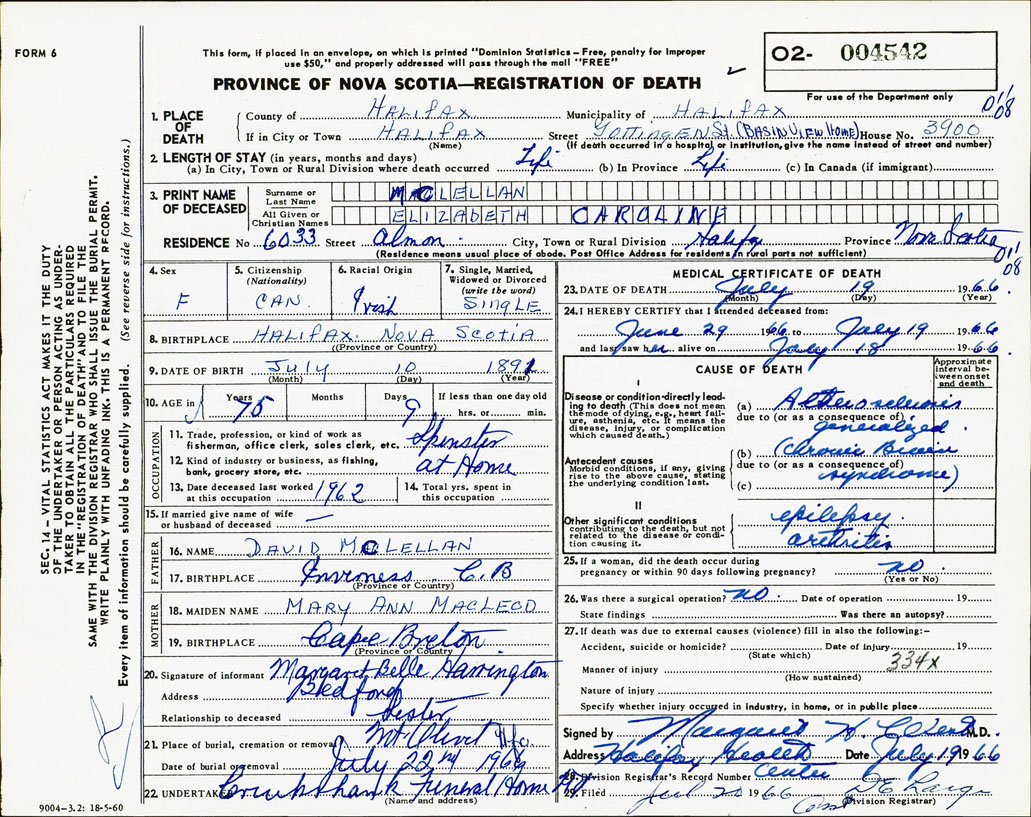 FORM 6
This form, if placed in an envelope, on which is printed "Dominion Statistics – Free, penalty for improper
use $50," and properly addressed will pass through the mail "FREE"
PROVINCE OF NOVA SCOTIA—REGISTRATION OF DEATH
O2- 004542
For use of the Department only
011
08
1. PLACE OF DEATH
County of HALIFAX Municipality of HALIFAX
If in City or Town HALIFAX Street GOTTINGEN St. (BASIN VIEW HOME) House No. 3900
(Name) (If death occurred in a hospital or institution, give the name instead of street and number)
2. LENGTH OF STAY (in years, months and days)
(a) In City, Town or Rural Division where death occurred Life (b) In Province Life (c) In Canada (if immigrant)
3. PRINT NAME OF DECEASED
Surname or Last Name MACLELLAN
All Given or Christian Names ELIZABETH CAROLINE
RESIDENCE No 6033 Street Almon City, Town or Rural Division Halifax Province Nova Scotia
(Residence means usual place of abode. Post Office Address for residents in rural parts not sufficient)
011
08
4. Sex F
5. Citizenship (Nationality) CAN.
6. Racial Origin Irish
7. Single, Married, Widowed or Divorced (write the word) SINGLE
8. BIRTHPLACE HALIFAX. NOVA SCOTIA
((Province or Country)
9. DATE OF BIRTH July 10 1891
(Month) (Day) (Year)
10. AGE in Years 75 Months Days 9 If less than one day old hrs. or min.
OCCUPATION
11. Trade, profession, or kind of work as fisherman, office clerk, sales clerk, etc. Spinster
12. Kind of industry or business, as fishing, bank, grocery store, etc. at Home
13. Date deceased last worked at this occupation 1962
14. Total yrs. spent in this occupation
15. If married give name of wife or husband of deceased —
FATHER
16. NAME DAVID MCLELLAN
17. BIRTHPLACE Inverness C.B
(Province or Country)
MOTHER
18. MAIDEN NAME MARY ANN MACLEOD
19. BIRTHPLACE Cape Breton
(Province or Country)
20. Signature of informant Margaret Belle Harrington
Address Bedford
Relationship to deceased Sister
21. Place of burial, cremation or removal Mt Olivet Hfx.
Date of burial or removal July 22nd 1966
22. UNDERTAKER Cruikshank Funeral Home
(Name and address)
9004–3.2: 18-5-60
MEDICAL CERTIFICATE OF DEATH
23. DATE OF DEATH July 19 1966
(Month) (Day) (Year)
24. I HEREBY CERTIFY that I attended deceased from:
June 29 1966 to July 19 1966
and last saw her alive on July 18 1966
CAUSE OF DEATH
Approximate interval between onset and death
I
Disease or condition directly leading to death (This does not mean the mode of dying, e.g., heart failure, asthenia, etc. It means the disease, injury, or complication which caused death.)
(a) Atherosclerosis
due to (or as a consequence of) generalized.
Antecedent causes
Morbid conditions, if any, giving rise to the above cause, stating the underlying condition last.
(b) (Chronic Brain
due to (or as a consequence of)
(c) syndrome)
II
Other significant conditions
contributing to the death, but not related to the disease or condition causing it.
epilepsy.
arthritis
25. If a woman, did the death occur during pregnancy or within 90 days following pregnancy? no
(Yes or No)
26. Was there a surgical operation? no. Date of operation 19
State findings Was there an autopsy?
27. If death was due to external causes (violence) fill in also the following:–
Accident, suicide or homicide? Date of injury 19
(State which)
334x
Manner of injury
(How sustained)
Nature of injury
Specify whether injury occurred in industry, in home, or in public place
Signed by Margaret M.D.
Address Halifax Health Center Date July 19 1966
28. Division Registrar's Record Number
29. Filed Jul 20 1966
(Division Registrar)
SEC. 14 – VITAL STATISTICS ACT MAKES IT THE DUTY
OF THE UNDERTAKER OR PERSON ACTING AS UNDER-
TAKER TO OBTAIN ALL THE PARTICULARS REQUIRED
IN THE "REGISTRATION OF DEATH" AND TO FILE THE
SAME WITH THE DIVISION REGISTRAR WHO SHALL ISSUE THE BURIAL PERMIT.
WRITE PLAINLY WITH UNFADING INK. THIS IS A PERMANENT RECORD.
Every item of information should be carefully supplied. (See reverse side for instructions.)